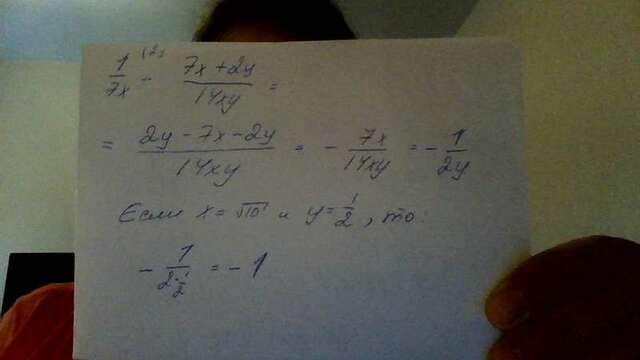 1/7x (2y - 7x+2y/14xy =
= 2y-7x-2y/14xy = - 7x/14xy = - 1/2y
Если x=√10 и y=1/2, то.
- 1/2·1/2 = - 1